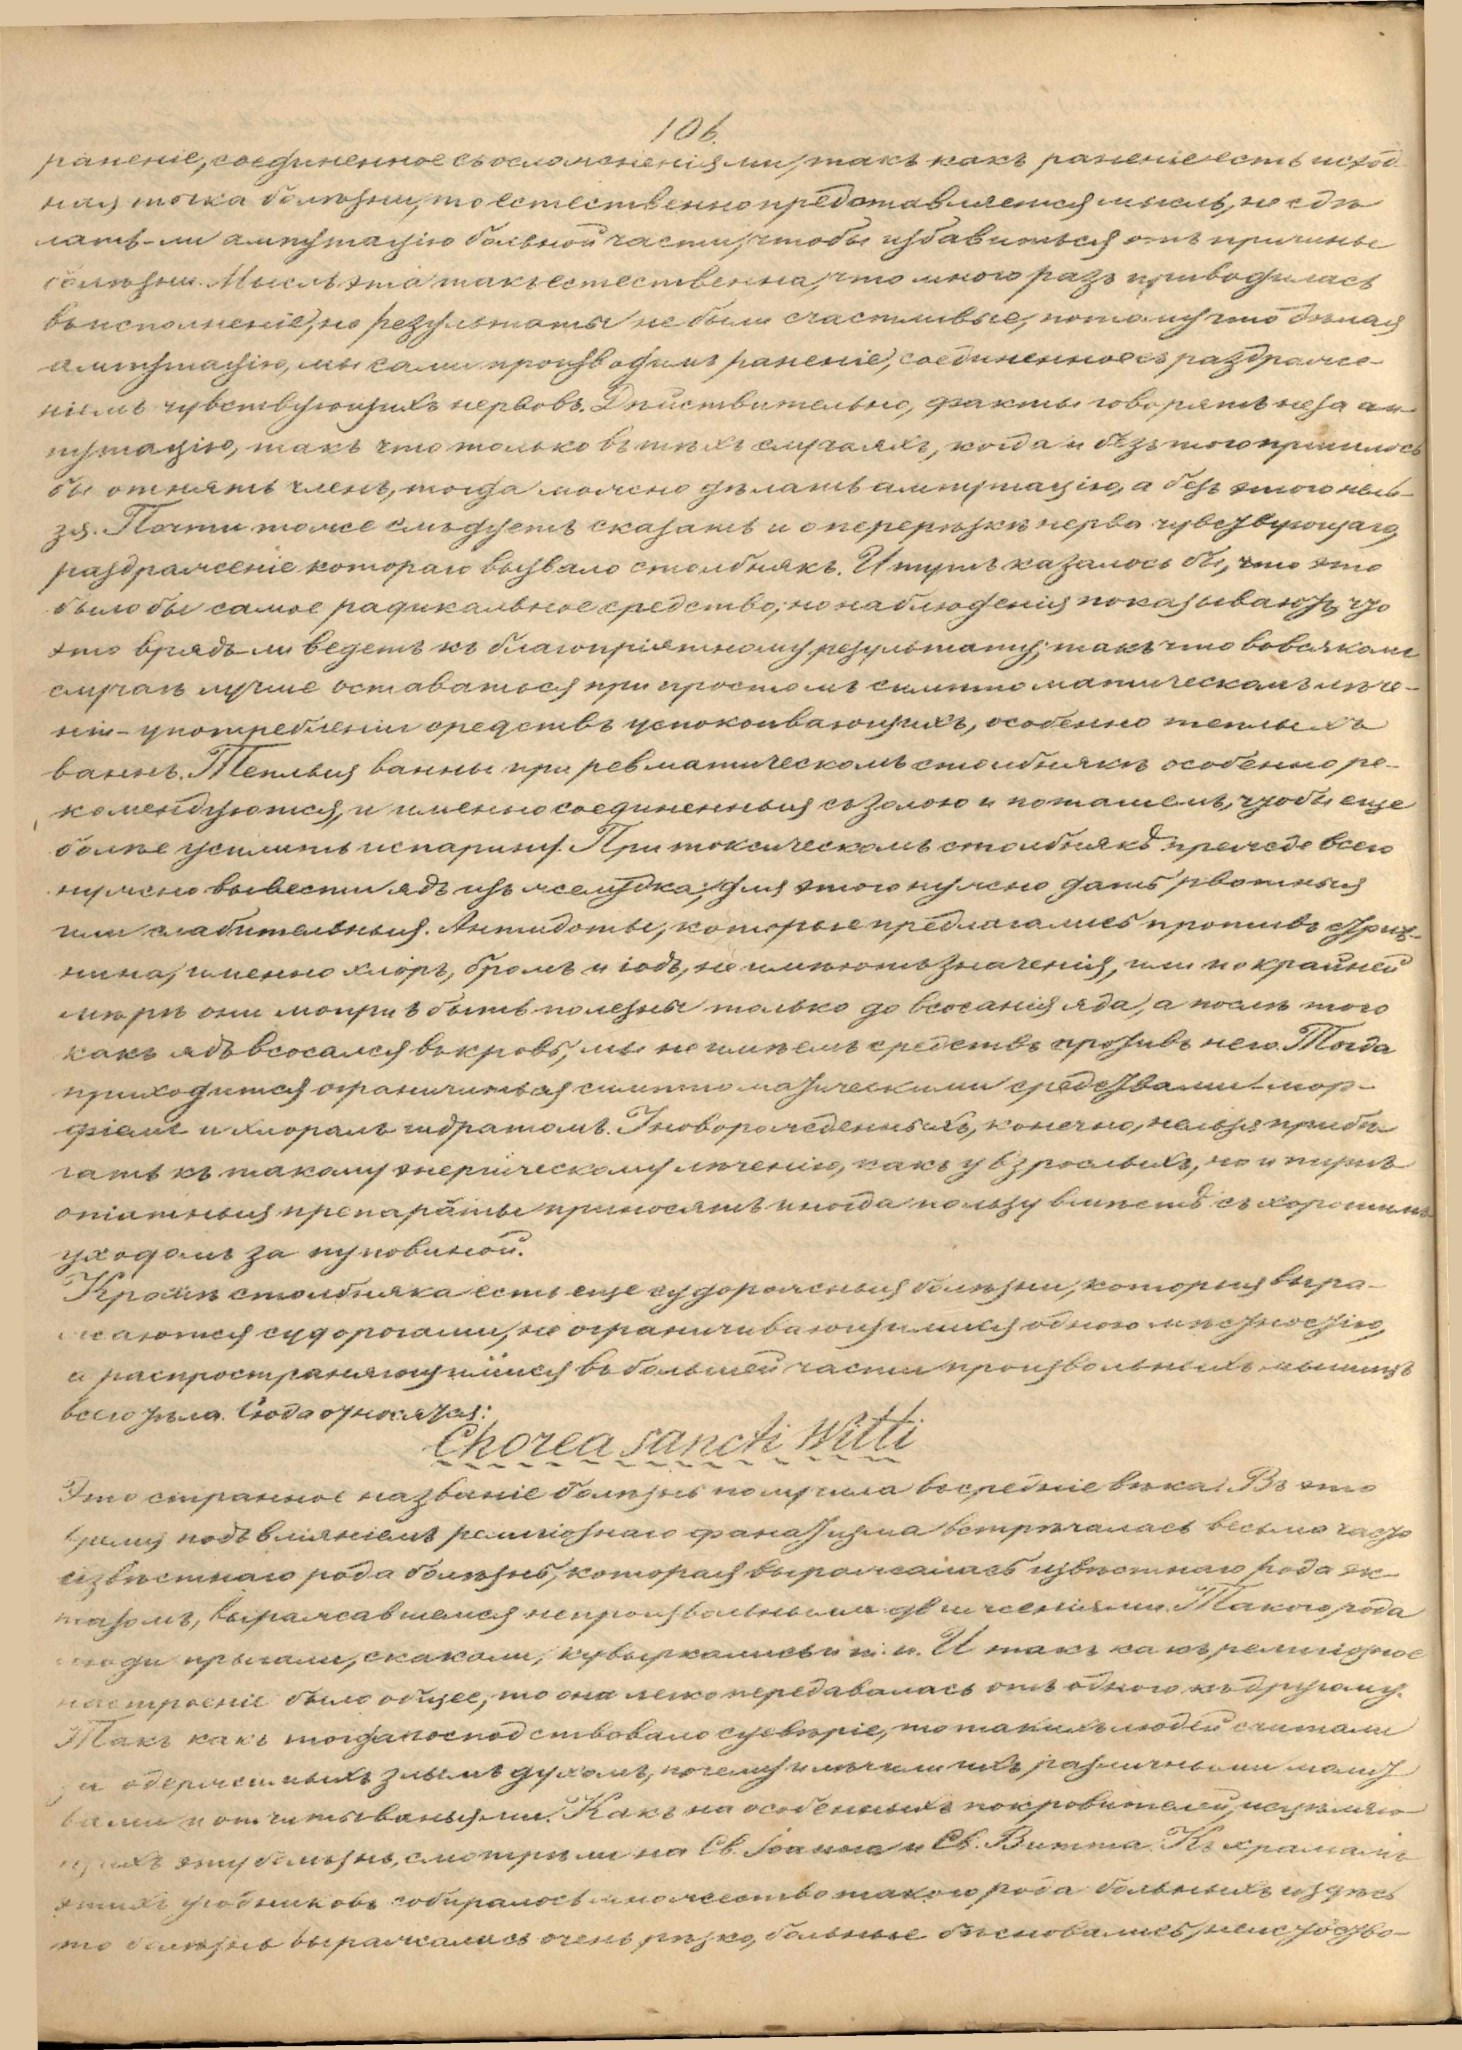 106.
раненіе, соединенное съ осложненіями, такъ какъ раненіе есть исход-
ная точка болѣзни, то естественно представляется мысль, не сдѣ
лать-ли ампутацію больной части, чтобы избавиться отъ причины
болѣзни. Мысль эта такъ естественна, что много разъ приводилась
въ исполненіе, но результаты не были счастливые, потому что дѣлая
ампутацію, мы сами производимъ раненіе, соединенное съ раздраже-
ніемъ чувствующихъ нервовъ. Дѣйствительно, факты говорятъ не за ам
путацію, такъ что только въ тѣхъ случаяхъ, когда и безъ того пришлось
бы отнять членъ, тогда можно дѣлать ампутацію, а безъ этого нель-
зя. Почти тоже слѣдуетъ сказать и о перерѣзкѣ нерва чувствующаго,
раздраженіе котораго вызвало столбнякъ. И тутъ казалось бы, что это
было бы самое радикальное средство, но наблюденія показываютъ, что
это врядъ ли ведетъ къ благопріятному результату; такъ что во всякомъ
случаѣ лучше оставаться при простомъ симптоматическомъ лѣче-
ніи - употребленіи средствъ успокоивающихъ, особенно теплыхъ
ваннъ. Теплыя ванны при ревматическомъ столбнякѣ особенно ре-
комендуются, и именно соединенныя съ золою и поташемъ, чтобы еще
болѣе усилить испарину. При токсическомъ столбнякѣ прежде всего
нужно вывести ядъ изъ желудка, для этого нужно дать рвотныя
или слабительныя. Антидоты, которые предлагались противъ стрих-
нина, именно хлоръ, бромъ и іодъ, не имѣютъ значенія, или по крайней
мѣрѣ они могутъ быть полезны только до всосанія яда, а послѣ того
какъ ядъ всосался въ кровь, мы не имѣемъ средствъ противъ него. Тогда
приходится ограничиться симптоматическими средствами - мор-
фіемъ и хлоралъ гидратомъ. У новорожденныхъ, конечно, нельзя прибѣ
гать къ такому энергическому лѣченію, какъ у взрослыхъ, но и тутъ
опіатныя препараты приносятъ иногда пользу вмѣстѣ съ хорошимъ
уходомъ за пуповиной.
Кромѣ столбняка есть еще судорожныя болѣзни, которыя выра-
жаются судорогами, не ограничивающимися одною мѣстностію,
а распространяющимися въ большей части произвольныхъ мышцъ
всего тѣла. Сюда относятся:
Chorea sancti Witti
Это странное названіе болѣзнь получила въ средніе вѣка. Въ это
время подъ вліяніемъ религіознаго фанатизма встрѣчалась весьма часто
извѣстнаго рода болѣзнь, которая выражалась извѣстнаго рода эк-
тазомъ, выражавшемся непроизвольными движеніями. Такого рода
люди прыгали, скакали, кувыркались и т. п. И такъ какъ религіозное
настроеніе было общее, то она легко передавалась отъ одного къ другому.
Такъ какъ тогда господствовало суевѣріе, то такихъ людей считали
за одержимыхъ злымъ духомъ, почему и лѣчили ихъ различными молит
вами и отчитываньями. Какъ на особенныхъ покровителей, исцѣляю
щихъ эту болѣзнь, смотрѣли на Св. Іоанна и Св. Витта. Къ храмамъ
этихъ угодниковъ собиралось множество такого рода больныхъ и здѣсь
то болѣзнь выражалась очень рѣзко, больные бѣсновались, неистовство-